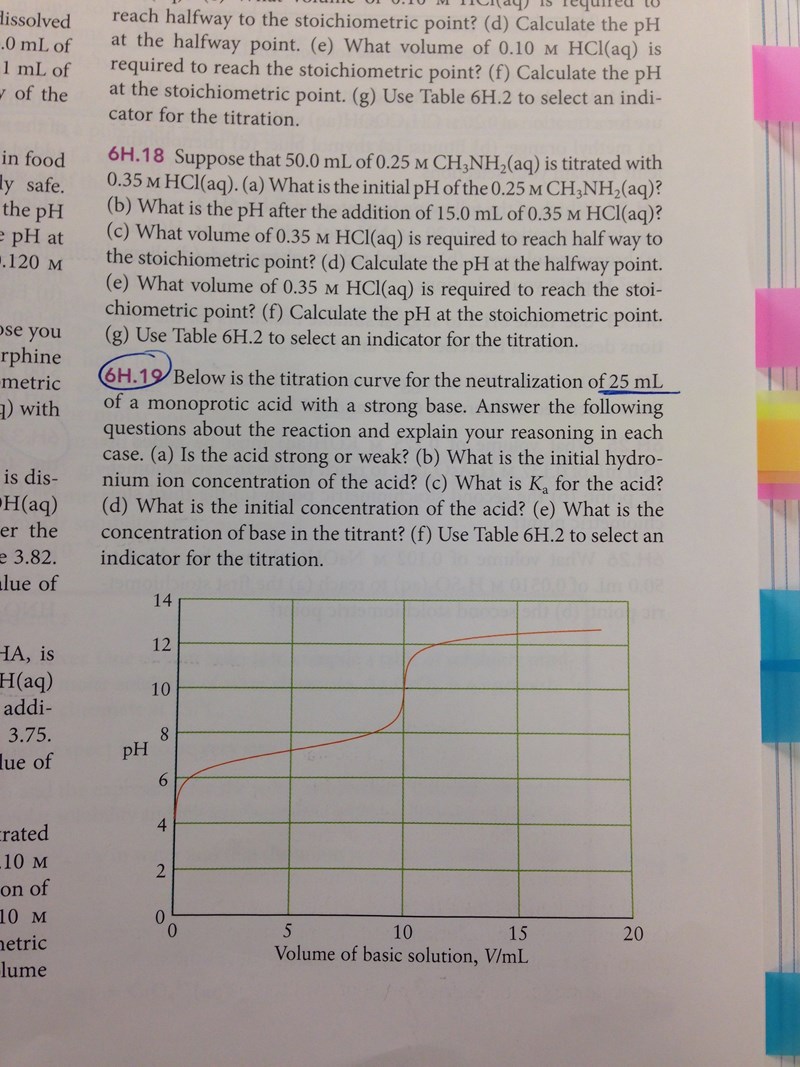 dissolved
.0 mL of
1 mL of
y of the
in food
ly safe.
the pH
e pH at
.120 M
ose you
rphine
metric
q) with
is dis-
OH(aq)
er the
e 3.82.
alue of
HA, is
H(aq)
addi-
3.75.
lue of
trated
.10 M
on of
10 M
metric
lume
reach halfway to the stoichiometric point? (d) Calculate the pH
at the halfway point. (e) What volume of 0.10 M HCl(aq) is
required to reach the stoichiometric point? (f) Calculate the pH
at the stoichiometric point. (g) Use Table 6H.2 to select an indi-
cator for the titration.
6H.18 Suppose that 50.0 mL of 0.25 M CH₃NH₂(aq) is titrated with
0.35 M HCl(aq). (a) What is the initial pH of the 0.25 M CH₃NH₂(aq)?
(b) What is the pH after the addition of 15.0 mL of 0.35 M HCl(aq)?
(c) What volume of 0.35 M HCl(aq) is required to reach half way to
the stoichiometric point? (d) Calculate the pH at the halfway point.
(e) What volume of 0.35 M HCl(aq) is required to reach the stoi-
chiometric point? (f) Calculate the pH at the stoichiometric point.
(g) Use Table 6H.2 to select an indicator for the titration.
6H.19 Below is the titration curve for the neutralization of 25 mL
of a monoprotic acid with a strong base. Answer the following
questions about the reaction and explain your reasoning in each
case. (a) Is the acid strong or weak? (b) What is the initial hydro-
nium ion concentration of the acid? (c) What is Kₐ for the acid?
(d) What is the initial concentration of the acid? (e) What is the
concentration of base in the titrant? (f) Use Table 6H.2 to select an
indicator for the titration.
14
12
10
8
pH
6
4
2
0
0 5 10 15 20
Volume of basic solution, V/mL